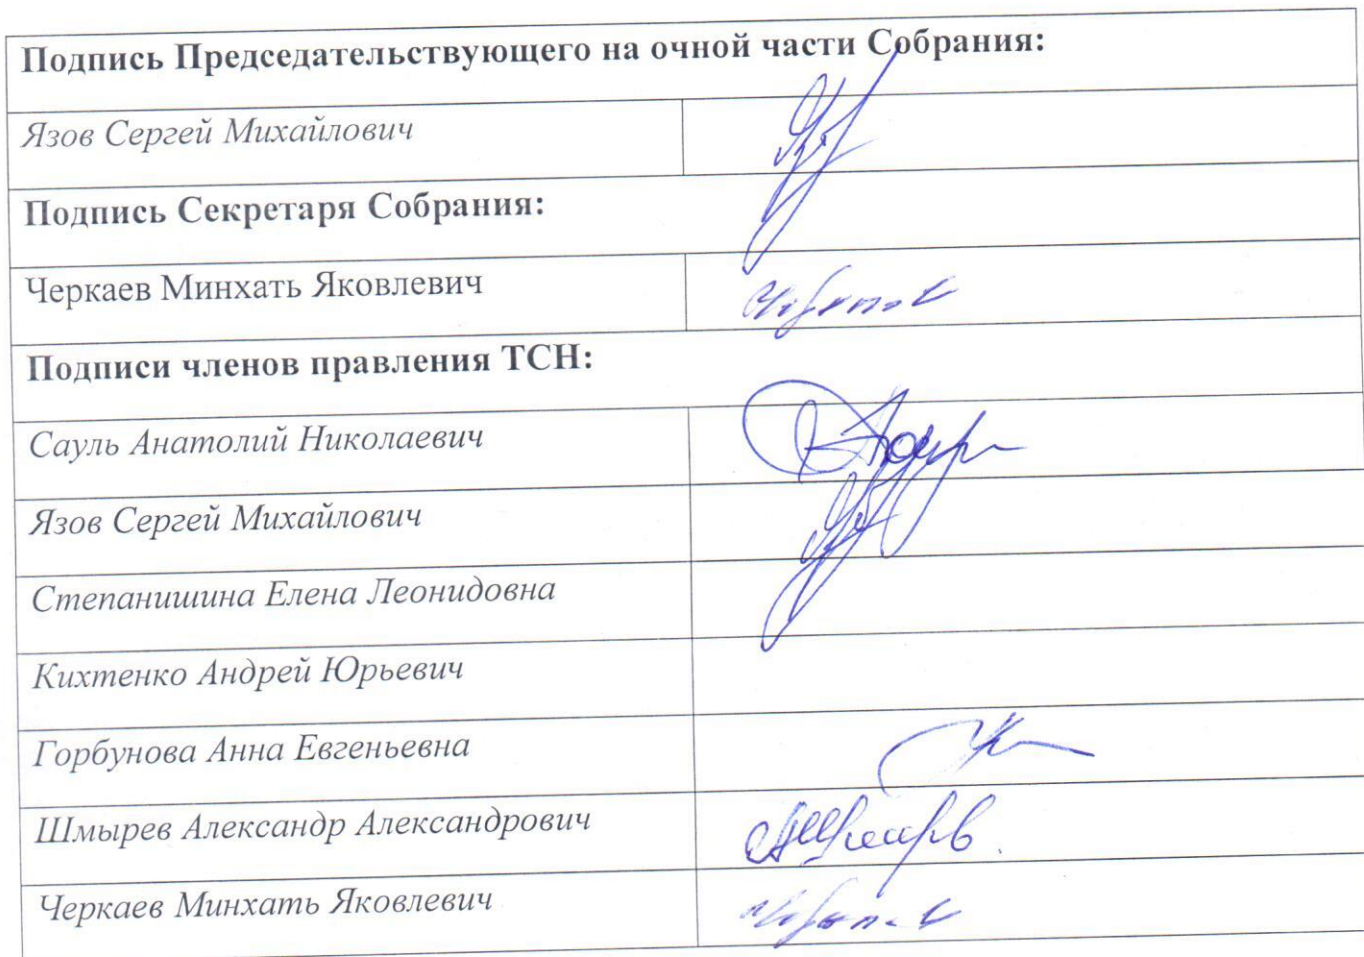 Подпись Председательствующего на очной части Собрания:
Язов Сергей Михайлович
Подпись Секретаря Собрания:
Черкаев Минхать Яковлевич
Подписи членов правления ТСН:
Сауль Анатолий Николаевич
Язов Сергей Михайлович
Степанишина Елена Леонидовна
Кихтенко Андрей Юрьевич
Горбунова Анна Евгеньевна
Шмырев Александр Александрович
Черкаев Минхать Яковлевич